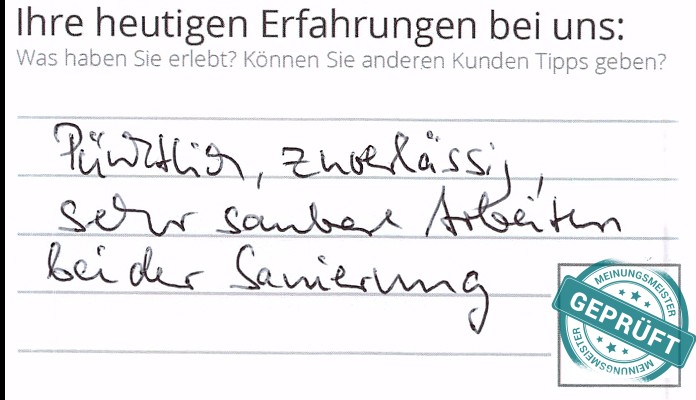 Ihre heutigen Erfahrungen bei uns:
Was haben Sie erlebt? Können Sie anderen Kunden Tipps geben?
Pünktlich, zuverlässig,
sehr saubere Arbeiten
bei der Sanierung
MEINUNGSMEISTER
GEPRÜFT
MEINUNGSMEISTER